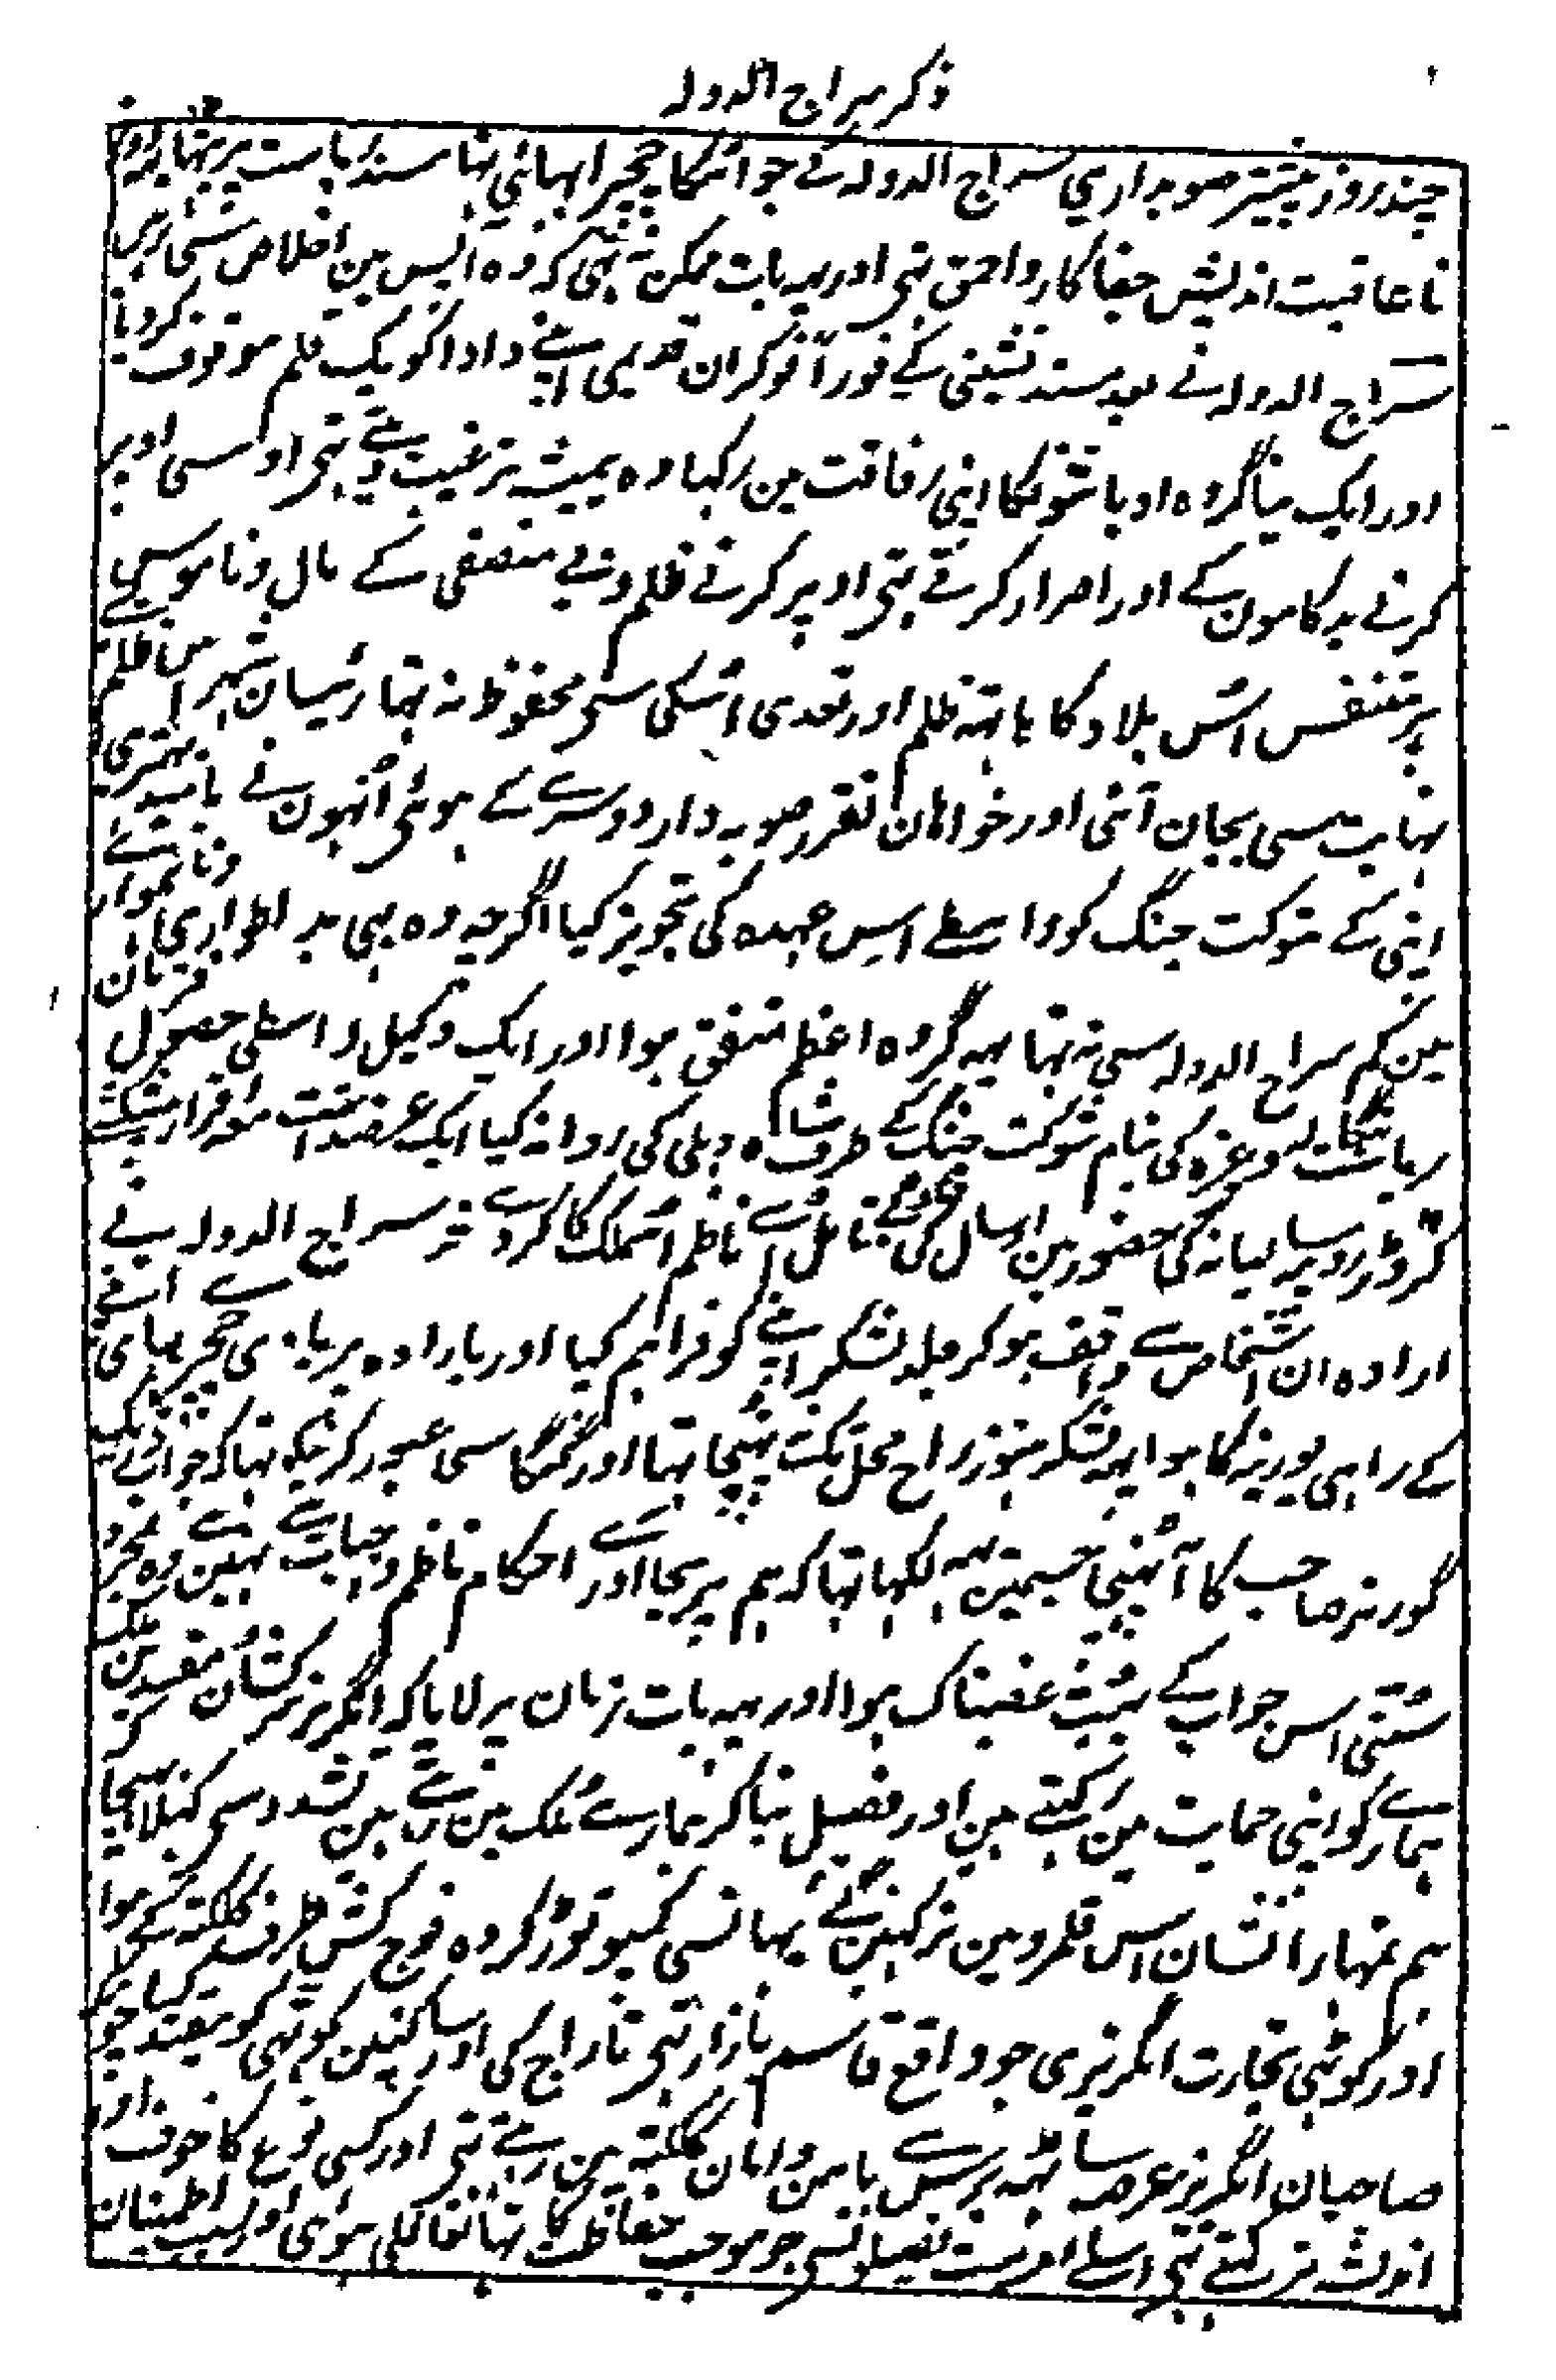 ذکر سراج الدولہ
چند روز پیشتر صوبداری سراج الدولہ کے جو اسکا چچیرا بہائی تہا مسند ریاست پر بیٹہا
ناعاقبت اندیش جفاکار و احمق تہی اور یہہ بات ممکن نہ تہی کہ وہ آپس مین اخلاص سی رہین
سراج الدولہ نے بعد مسند نشینی کے فوراً نوکران قدیمی اپنے دادا کو یک قلم موقوف کر دیا
اور ایک نیا گروہ اوباشونکا اپنی رفاقت مین رکہا وہ ہمیشہ ترغیب دیتے تہی اوسی اوپر
کرنے بدکامون کے اور اصرار کرتے تہی اوپر کرنے ظلم و بے منصفی کے مال و ناموس سے
ہر متنفس اُس بلاد کا ہاتہہ ظلم اور تعدی اُسکی سی محفوظ نہ تہا رئیسان شہر اس ظلم
نہایت سی بجان آئی اور خواہان تقرر صوبہ دار دوسرے کے ہوئی اُنہون نے بامید بہتری
اپنی کے شوکت جنگ کو واسطے اس عہدہ کی تجویز کیا اگرچہ وہ بہی بد اطواری و ناہموار
مین کم سراج الدولہ سی نہ تہا یہہ گروہ اعظم متفق ہوا اور ایک وکیل واسطی حصول فرمان
ریاست بنگالہ وغیرہ کی بنام شوکت جنگ کے طرف شاہ دہلی کی روانہ کیا ایک عرضداشت معہ اقرار پیشکش
کروڑ روپیہ سالیانہ کی حضور مین ارسال کی تا اُسے ناظم اُسملک کا کردے سراج الدولہ نے
ارادہ ان اشخاص سے واقف ہو کر جلد لشکر اپنے کو فراہم کیا اور بارادہ بربادی چچیرے بہائی اپنے
کے راہی پورنیہ کا ہوا یہہ لشکر ہنوز راج محل تک پہنچا تہا اور گنگا سی عبور کر چکا تہا کہ جواب ڈریک
گورنر صاحب کا آ پہنچا جسمین یہہ لکہا تہا کہ ہم پر بجا آوری احکام ناظم واجبات سے نہین وہ بمجرد
سننی اس جواب کے بشدت غضبناک ہوا اور یہہ بات زبان پر لایا کہ انگریز سرکشان مفسدین ملک
ہمارے کو اپنی حمایت مین رکہتے ہین اور فصیل بنا کر ہمارے ملک مین رہتے ہین تشدد سی کہلا بہیجا
ہم تمہارا نشان اس قلمرو مین نرکہینگے یہانسی کمپو توڑ کر وہ فوج کش طرف کلکتہ کے ہوا
اور کوٹہی تجارت انگریزی جو واقع قاسم بازار تہی تاراج کی اور ساکنین کوٹہی کو مقید کیا چونکہ
صاحبان انگریز عرصہ ساٹہہ برس سے بامن و امان کلکتہ مین رہتے تہی اور کسی نوع کا خوف اور
اندیشہ نرکہتے تہی اسلئے مرمت فصیلونسی جو موجب حفاظت کا تہا تغافلی ہوئی اور بسبب اطمینان